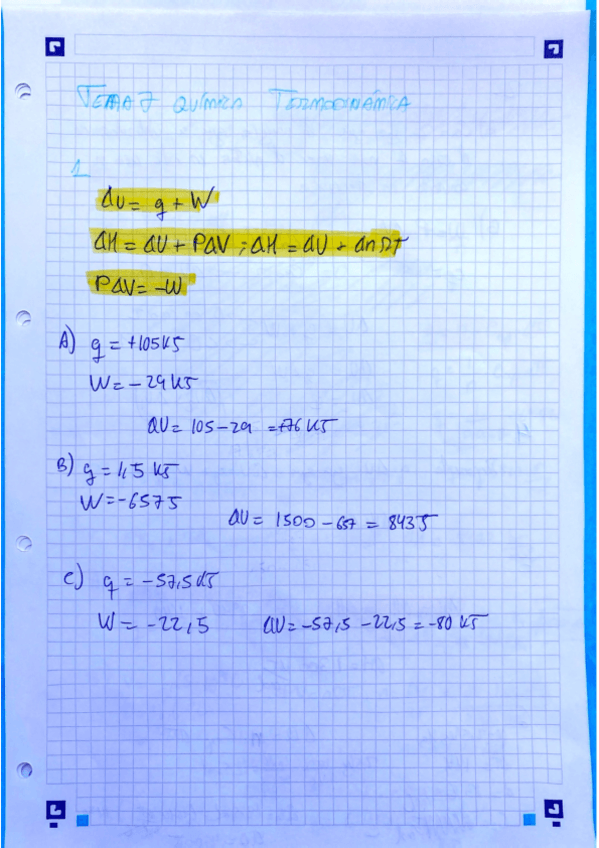 TEMA 7 QUÍMICA TERMODINÁMICA
1
ΔU = q + W
ΔH = ΔU + PΔV ; ΔH = ΔU + ΔnRT
PΔV = -W
A) q = +105 kJ
W = -29 kJ
ΔU = 105 - 29 = +76 kJ
B) q = 1,5 kJ
W = -657 J
ΔU = 1500 - 657 = 843 J
C) q = -57,5 kJ
W = -22,5
ΔU = -57,5 - 22,5 = -80 kJ